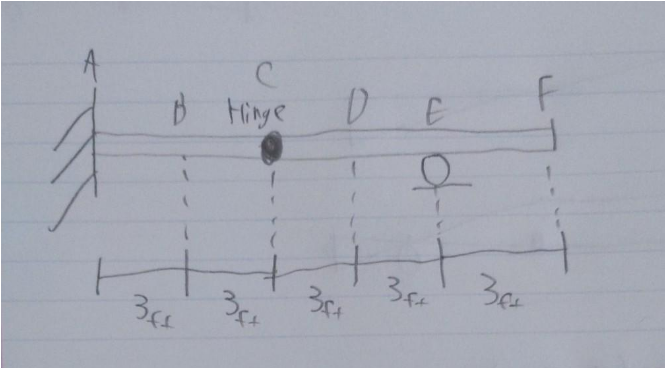 A
B
C
Hinge
D
E
F
3ft
3ft
3ft
3ft
3ft